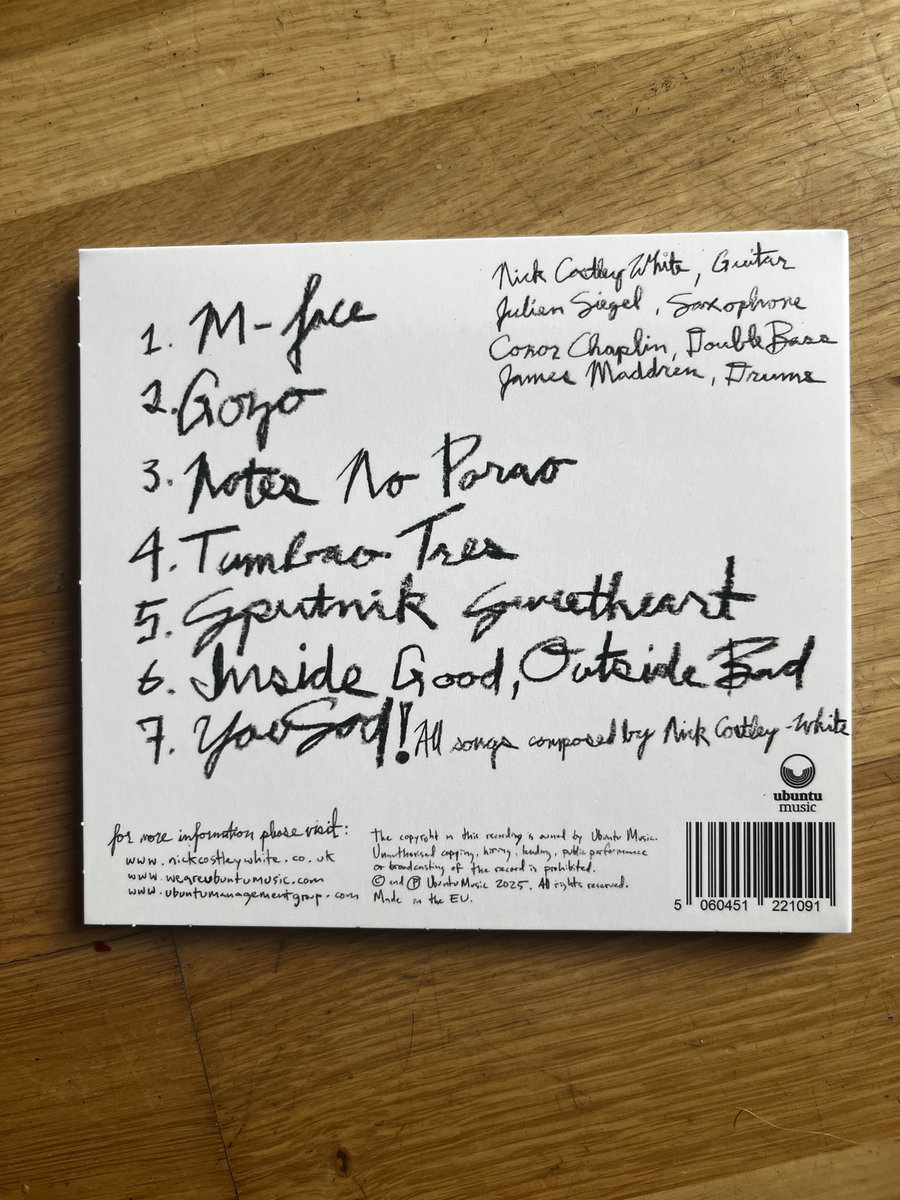 Nick Costley White, Guitar
Julien Siegel, Saxophone
Conor Chaplin, Double Bass
James Maddren, Drums
1. M-face
2. Gozo
3. Notes No Parao
4. Tumbao Tres
5. Sputnik Sweetheart
6. Inside Good, Outside Bad
7. You Sod!
All songs composed by Nick Costley-White
ubuntu
music
for more information please visit:
www.nickcostleywhite.co.uk
www.weareubuntumusic.com
www.ubuntumanagementgroup.com
The copyright in this recording is owned by Ubuntu Music.
Unauthorised copying, hiring, lending, public performance
or broadcasting of the record is prohibited.
© and ℗ Ubuntu Music 2025. All rights reserved.
Made in the EU.
5 060451 221091